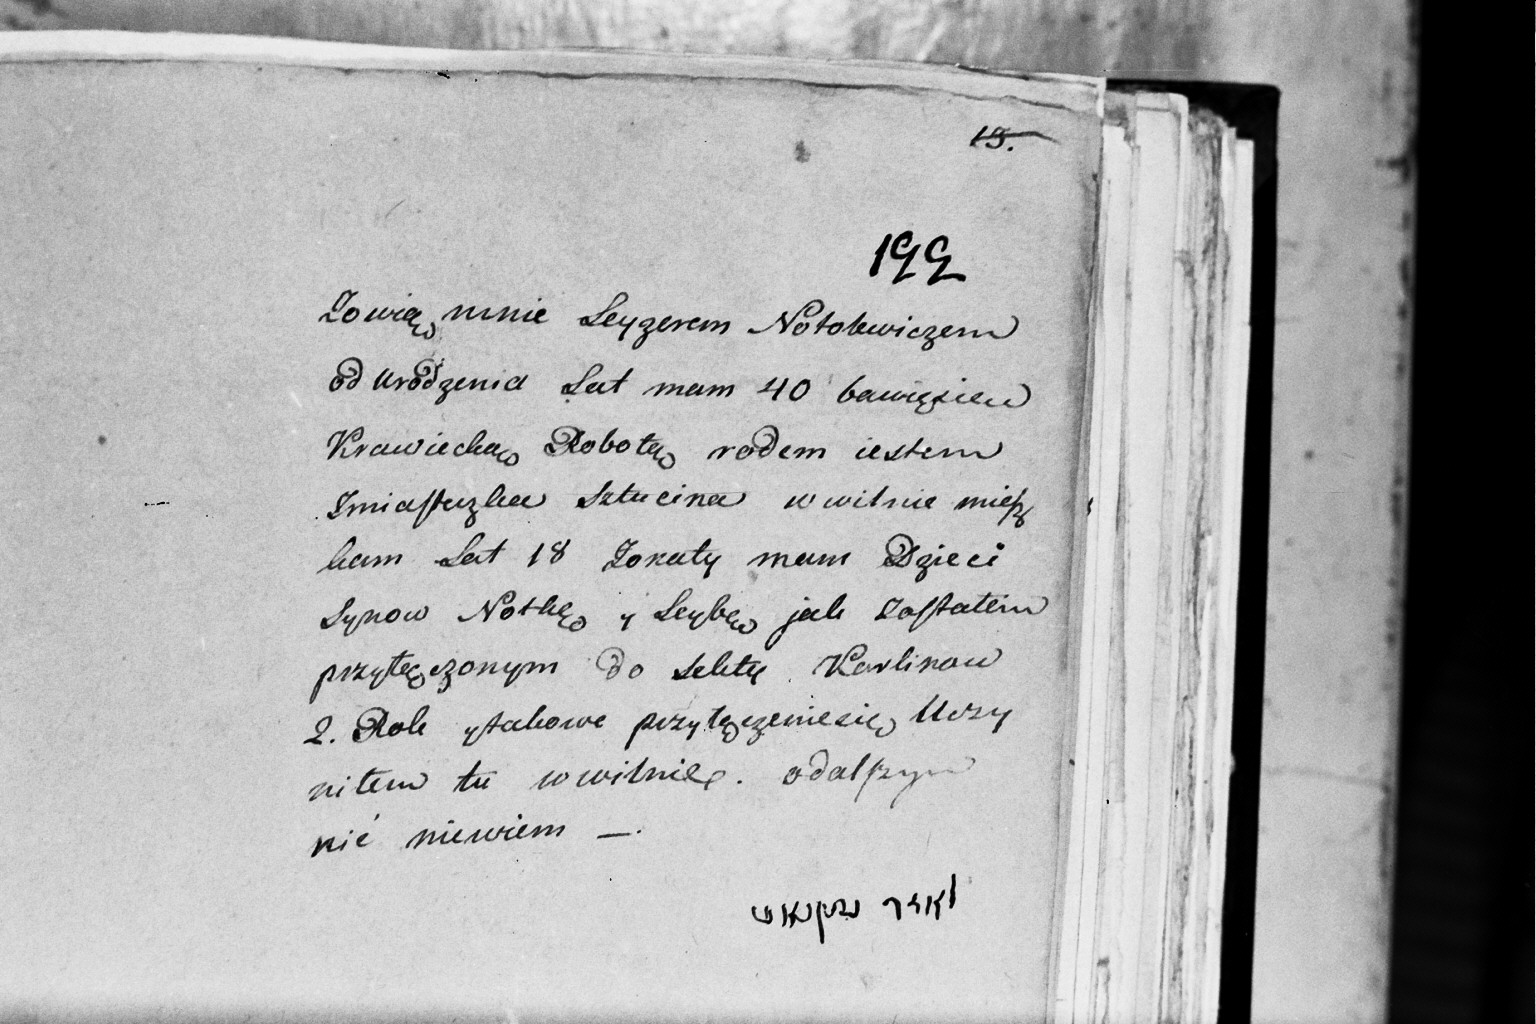 15.
199
Zowią mnie Leyzerem Notolewiczem
od urodzenia Lat mam 40 bawięsieu
Krawiecką Robotą rodem iestem
Zmiasteczka Sztucina w wilnie miesz
kam Lat 18 Zonaty mam Dzieci
Synow Notkę y Leybę jak Zostałem
przyłęczonym do Sektę Karlinow
2. Rok ytakowe przyłęczeniesię Uczy
niłem tu w wilnie. odalszym
nić niewiem —.